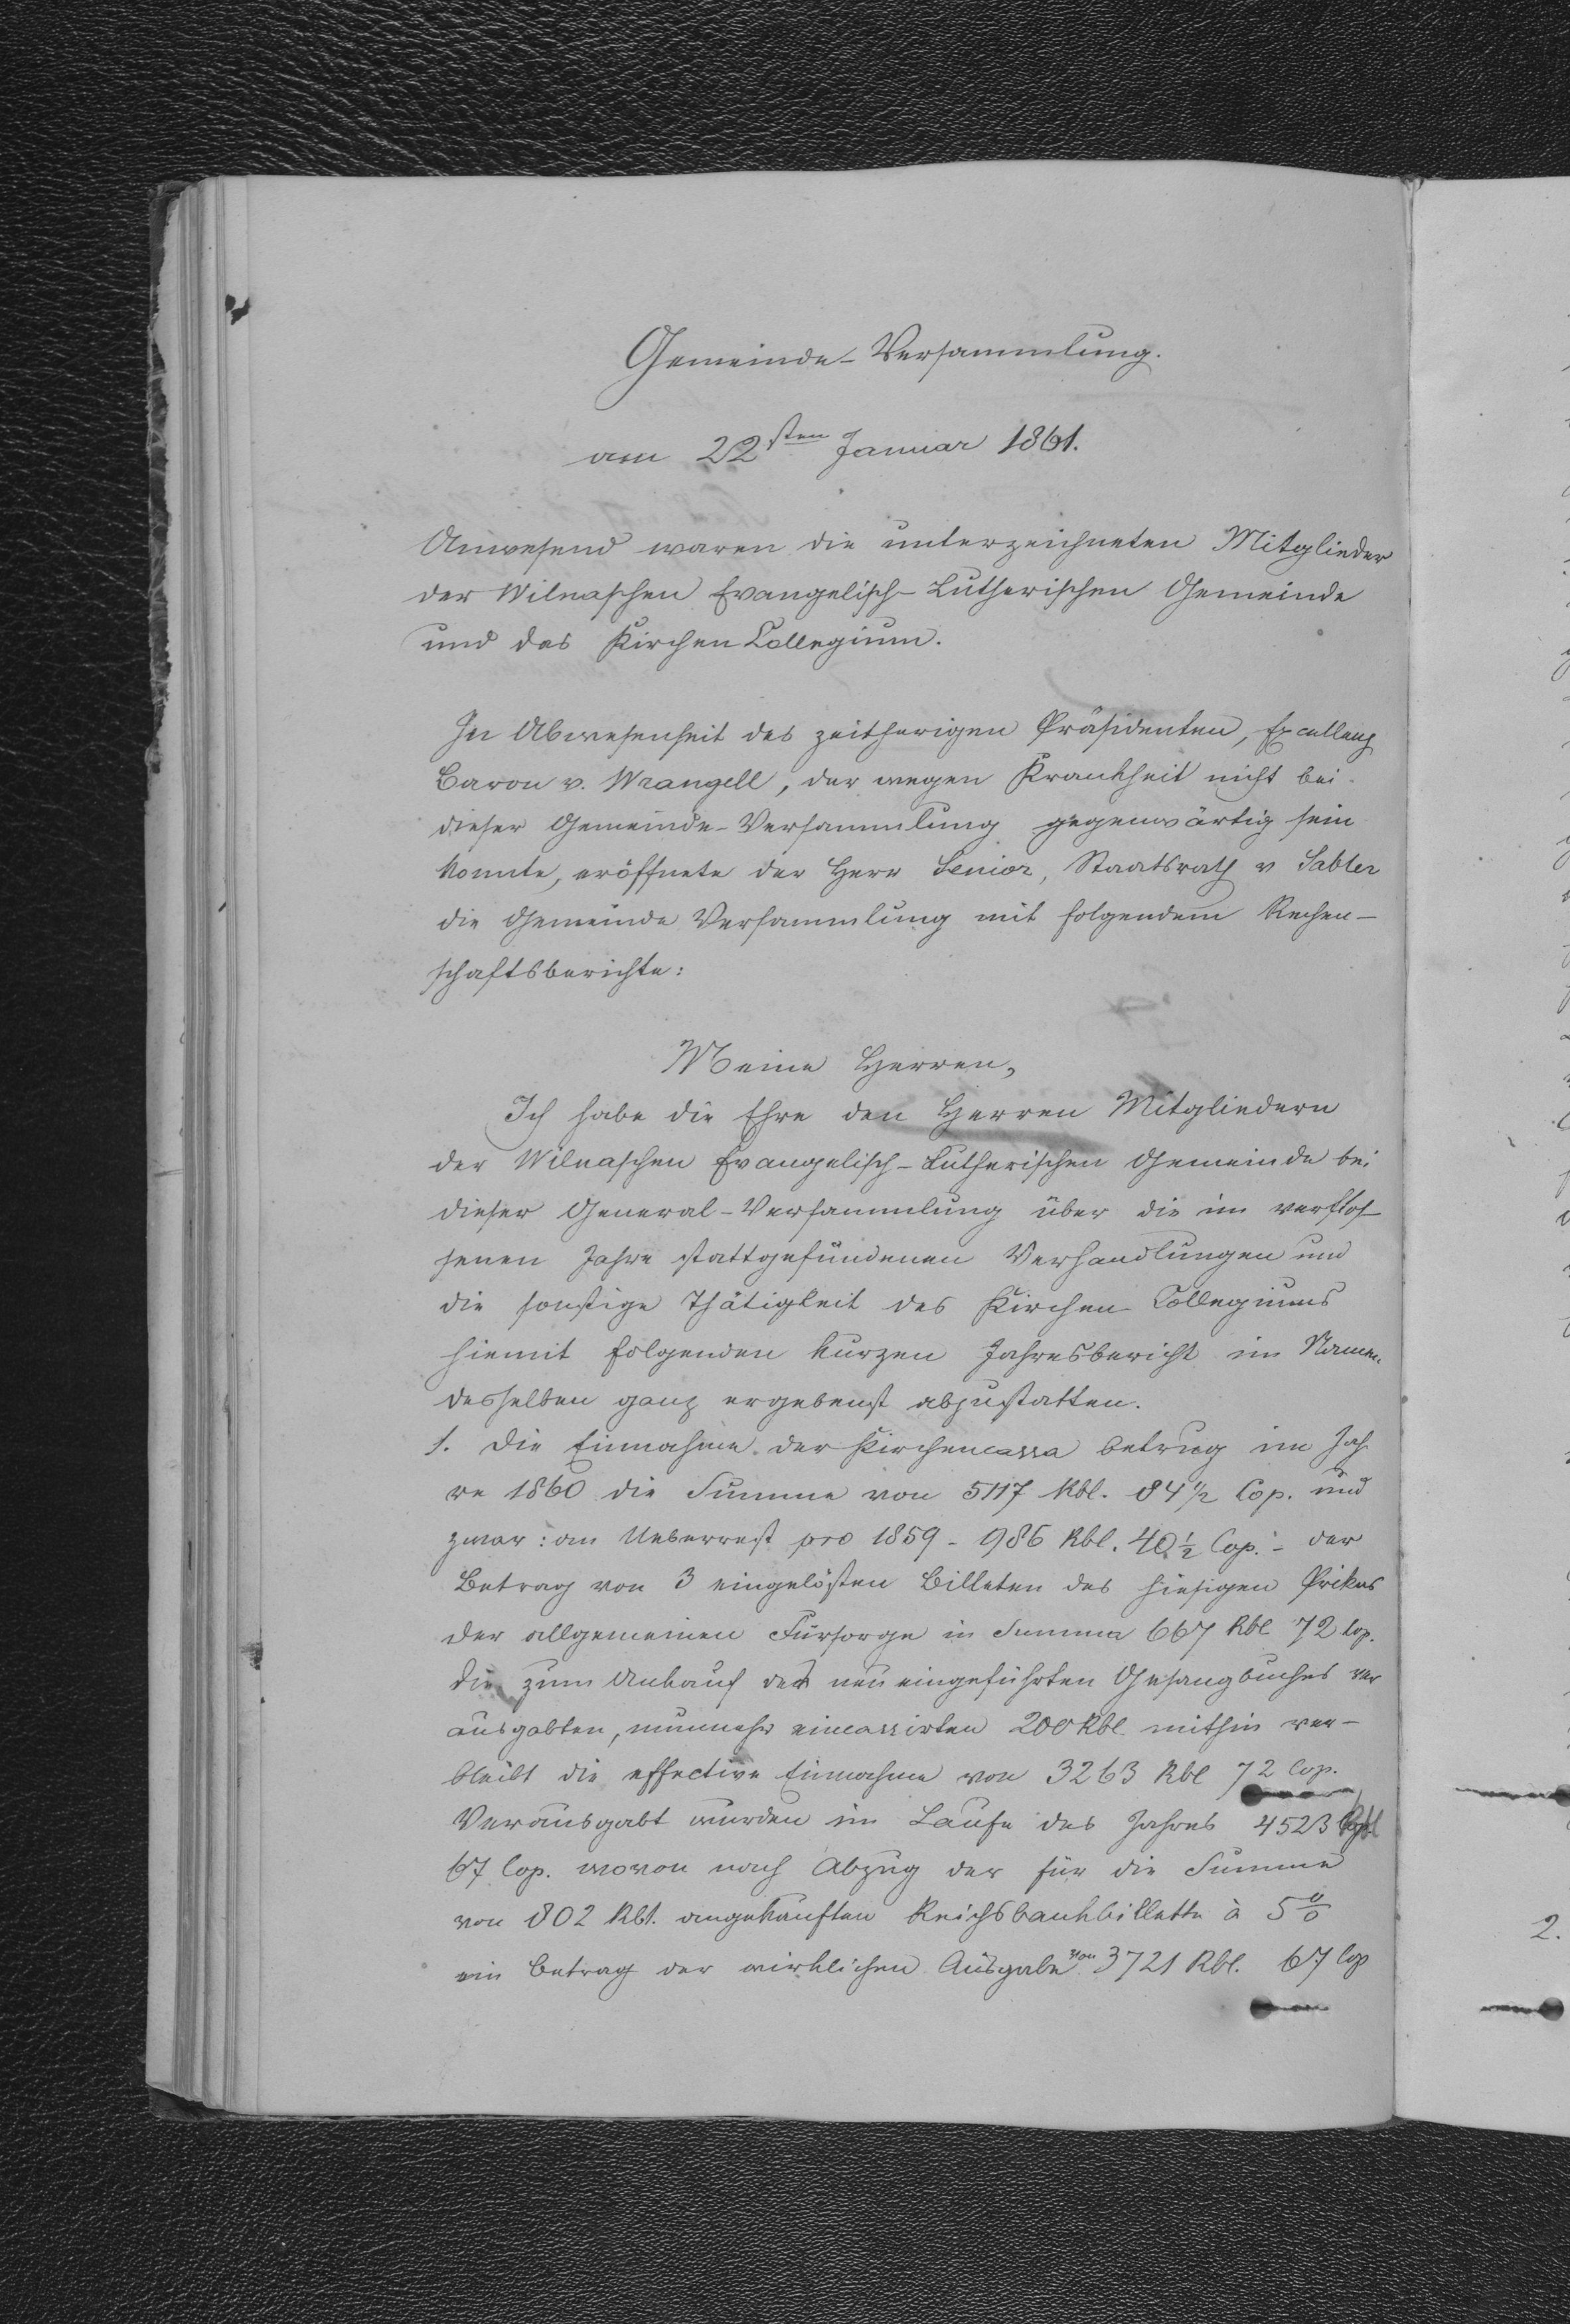 Gemeinde-Versammlung.
am 22sten Januar 1861.
Anwesend waren die unterzeichneten Mitglieder
der Wilnaschen Evangelisch-Lutherischen Gemeinde
und das Kirchen Collegium.
In Abwesenheit des zeitherigen Präsidenten, Excellenz
Baron v. Wrangell, der wegen Krankheit nicht bei
dieser Gemeinde-Versammlung gegenwärtig sein
konnte, eröffnete der Herr Senior, Staatsrath v Sabler
die Gemeinde Versammlung mit folgendem Rechen-
schaftsberichte:
Meine Herren,
Ich habe die Ehre den Herren Mitgliedern
der Wilnaschen Evangelisch-Lutherischen Gemeinde bei
dieser General-Versammlung über die im verflos-
senen Jahre stattgefundenen Verhandlungen und
die sonstige Thätigkeit des Kirchen-Collegiums
hiemit folgenden kurzen Jahresbericht im Namen
desselben ganz ergebenst abzustatten.
1. Die Einnahme der Kirchencassa betrug im Jah
re 1860 die Summe von 5117 Rbl. 84 1/2 Cop. und
zwar: an Ueberrest pro 1859 - 986 Rbl. 40 1/2 Cop. - der
Betrag von 3 eingelösten Billeten des hiesigen Prikas
der allgemeinen Fürsorge in Summa 667 Rbl 72 Cop.
die zum Ankauf des neu eingeführten Gesangbuches ver
ausgabten, nunmehr eincassirten 200 Rbl mithin ver-
bleibt die effective Einnahme von 3263 Rbl 72 Cop.
Verausgabt wurden im Laufe des Jahres 4523 Rbl
67 Cop. wovon nach Abzug der für die Summe
von 802 Rbl. angekauften Reichsbankbillette à 5 0/0
ein Betrag der wirklichen Ausgabe von 3721 Rbl. 67 Cop
2.